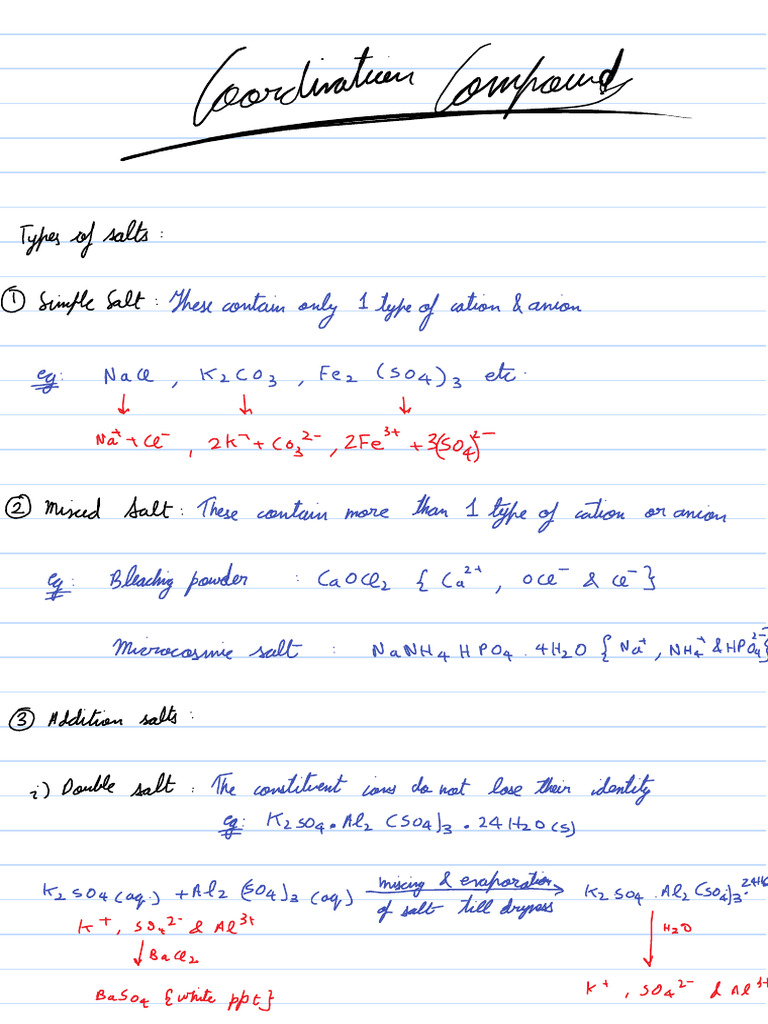 Coordination Compounds
Types of salts :
① Simple Salt : These contain only 1 type of cation & anion
eg: NaCl , K2CO3 , Fe2 (SO4)3 etc.
↓ ↓ ↓
Na⁺ + Cl⁻ , 2K⁺ + CO3²⁻ , 2Fe³⁺ + 3(SO4)²⁻
② Mixed Salt : These contain more than 1 type of cation or anion
eg: Bleaching powder : CaOCl2 { Ca²⁺ , OCl⁻ & Cl⁻ }
Microcosmic salt : NaNH4HPO4 . 4H2O { Na⁺, NH4⁺ & HPO4²⁻ }
③ Addition salts :
i) Double salt : The constituent ions do not lose their identity
eg: K2SO4 . Al2 (SO4)3 . 24H2O (s)
K2SO4 (aq.) + Al2 (SO4)3 (aq) mixing & evaporation of salt till dryness → K2SO4 . Al2 (SO4)3 .
K⁺, SO4²⁻ & Al³⁺ ↓ H2O
↓ BaCl2
BaSO4 {white ppt} K⁺ , SO4²⁻ & Al³⁺